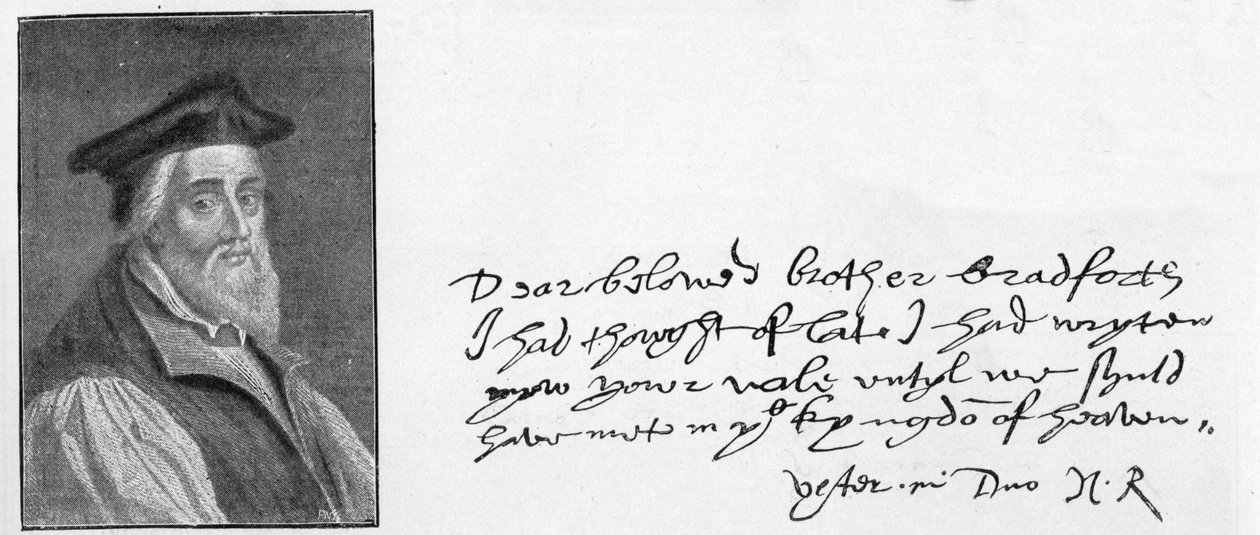 Dear beloved brother Bradforth
I had thowght of late I had wryten
yowr vale vntyl we shuld
have mete in yᵉ kyngdō of heaven,,
vester in Dno N. R